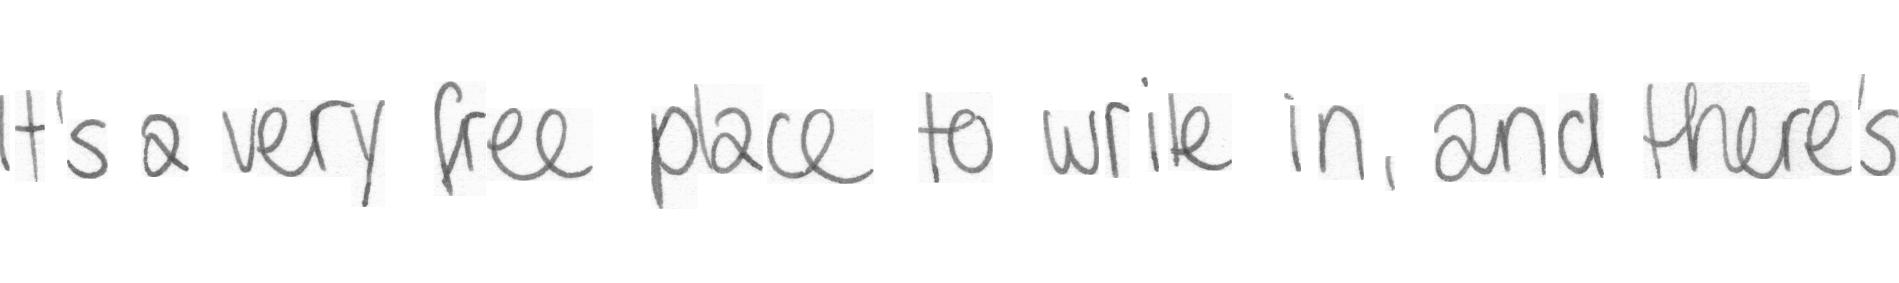 It's a very free place to write in, and there's